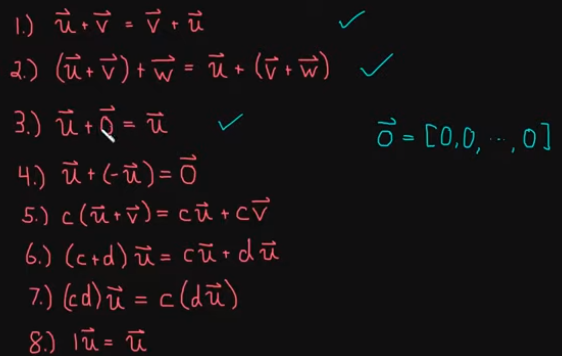 1.) u⃗ + v⃗ = v⃗ + u⃗ ✓
2.) (u⃗ + v⃗) + w⃗ = u⃗ + (v⃗ + w⃗) ✓
3.) u⃗ + 0⃗ = u⃗ ✓
0⃗ = [0,0, ..., 0]
4.) u⃗ + (-u⃗) = 0⃗
5.) c(u⃗ + v⃗) = cu⃗ + cv⃗
6.) (c+d)u⃗ = cu⃗ + du⃗
7.) (cd)u⃗ = c(du⃗)
8.) 1u⃗ = u⃗